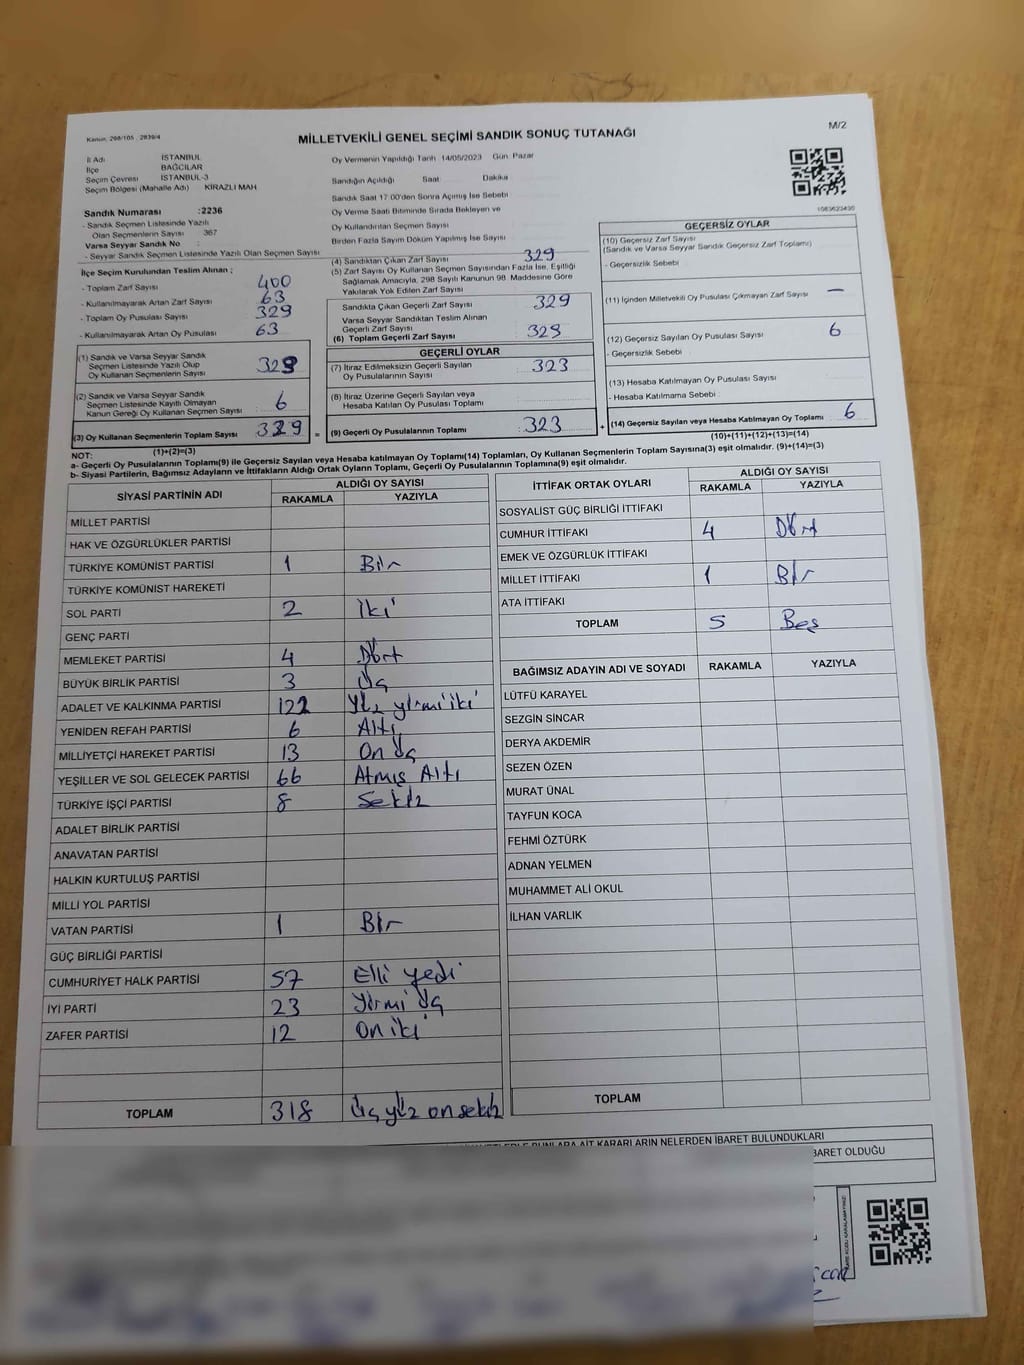 Kanun: 298/105 , 2839/4
MİLLETVEKİLİ GENEL SEÇİMİ SANDIK SONUÇ TUTANAĞI
M/2
İl Adı İSTANBUL
İlçe BAĞCILAR
Seçim Çevresi İSTANBUL-3
Seçim Bölgesi (Mahalle Adı) KİRAZLI MAH
Oy Vermenin Yapıldığı Tarih 14/05/2023 Gün Pazar
Sandığın Açıldığı Saat Dakika
Sandık Saat 17:00'den Sonra Açımış İse Sebebi
Oy Verme Saati Bitiminde Sırada Bekleyen ve
Oy Kullandırılan Seçmen Sayısı
Birden Fazla Sayım Döküm Yapılmış İse Sayısı
Sandık Numarası :2236
- Sandık Seçmen Listesinde Yazılı
Olan Seçmenlerin Sayısı 367
Varsa Seyyar Sandık No :
- Seyyar Sandık Seçmen Listesinde Yazılı Olan Seçmen Sayısı
İlçe Seçim Kurulundan Teslim Alınan ;
- Toplam Zarf Sayısı 400
- Kullanılmayarak Artan Zarf Sayısı 63
- Toplam Oy Pusulası Sayısı 329
- Kullanılmayarak Artan Oy Pusulası 63
(1) Sandık ve Varsa Seyyar Sandık
Seçmen Listesinde Yazılı Olup
Oy Kullanan Seçmenlerin Sayısı 323
(2) Sandık ve Varsa Seyyar Sandık
Seçmen Listesinde Kayıtlı Olmayan
Kanun Gereği Oy Kullanan Seçmen Sayısı 6
(3) Oy Kullanan Seçmenlerin Toplam Sayısı 329
(1)+(2)=(3)
(4) Sandıktan Çıkan Zarf Sayısı 329
(5) Zarf Sayısı Oy Kullanan Seçmen Sayısından Fazla İse, Eşitliği
Sağlamak Amacıyla, 298 Sayılı Kanunun 98. Maddesine Göre
Yakılarak Yok Edilen Zarf Sayısı
Sandıkta Çıkan Geçerli Zarf Sayısı 329
Varsa Seyyar Sandıktan Teslim Alınan
Geçerli Zarf Sayısı
(6) Toplam Geçerli Zarf Sayısı 329
GEÇERLİ OYLAR
(7) İtiraz Edilmeksizin Geçerli Sayılan
Oy Pusulalarının Sayısı 323
(8) İtiraz Üzerine Geçerli Sayılan veya
Hesaba Katılan Oy Pusulası Toplamı
= (9) Geçerli Oy Pusulalarının Toplamı : 323 +
1083623430
GEÇERSİZ OYLAR
(10) Geçersiz Zarf Sayısı
(Sandık ve Varsa Seyyar Sandık Geçersiz Zarf Toplamı)
- Geçersizlik Sebebi
(11) İçinden Milletvekili Oy Pusulası Çıkmayan Zarf Sayısı —
(12) Geçersiz Sayılan Oy Pusulası Sayısı 6
- Geçersizlik Sebebi
(13) Hesaba Katılmayan Oy Pusulası Sayısı
- Hesaba Katılmama Sebebi :
(14) Geçersiz Sayılan veya Hesaba Katılmayan Oy Toplamı 6
(10)+(11)+(12)+(13)=(14)
NOT:
a- Geçerli Oy Pusulalarının Toplamı(9) ile Geçersiz Sayılan veya Hesaba katılmayan Oy Toplamı(14) Toplamları, Oy Kullanan Seçmenlerin Toplam Sayısına(3) eşit olmalıdır. (9)+(14)=(3)
b- Siyasi Partilerin, Bağımsız Adayların ve İttifakların Aldığı Ortak Oyların Toplamı, Geçerli Oy Pusulalarının Toplamına(9) eşit olmalıdır.
SİYASİ PARTİNİN ADI ALDIĞI OY SAYISI
RAKAMLA YAZIYLA
MİLLET PARTİSİ
HAK VE ÖZGÜRLÜKLER PARTİSİ
TÜRKİYE KOMÜNİST PARTİSİ 1 Bir
TÜRKİYE KOMÜNİST HAREKETİ
SOL PARTİ 2 İki
GENÇ PARTİ
MEMLEKET PARTİSİ 4 Dört
BÜYÜK BİRLİK PARTİSİ 3 Üç
ADALET VE KALKINMA PARTİSİ 122 Yüz yirmi iki
YENİDEN REFAH PARTİSİ 6 Altı
MİLLİYETÇİ HAREKET PARTİSİ 13 On Üç
YEŞİLLER VE SOL GELECEK PARTİSİ 66 Atmış Altı
TÜRKİYE İŞÇİ PARTİSİ 8 Sekiz
ADALET BİRLİK PARTİSİ
ANAVATAN PARTİSİ
HALKIN KURTULUŞ PARTİSİ
MİLLİ YOL PARTİSİ
VATAN PARTİSİ 1 Bir
GÜÇ BİRLİĞİ PARTİSİ
CUMHURİYET HALK PARTİSİ 57 Elli yedi
İYİ PARTİ 23 Yirmi üç
ZAFER PARTİSİ 12 On iki
TOPLAM 318 Üç yüz on sekiz
İTTİFAK ORTAK OYLARI ALDIĞI OY SAYISI
RAKAMLA YAZIYLA
SOSYALİST GÜÇ BİRLİĞİ İTTİFAKI
CUMHUR İTTİFAKI 4 Dört
EMEK VE ÖZGÜRLÜK İTTİFAKI
MİLLET İTTİFAKI 1 Bir
ATA İTTİFAKI
TOPLAM 5 Beş
BAĞIMSIZ ADAYIN ADI VE SOYADI RAKAMLA YAZIYLA
LÜTFÜ KARAYEL
SEZGİN SİNCAR
DERYA AKDEMİR
SEZEN ÖZEN
MURAT ÜNAL
TAYFUN KOCA
FEHMİ ÖZTÜRK
ADNAN YELMEN
MUHAMMET ALİ OKUL
İLHAN VARLIK
TOPLAM
BUNLARA AİT KARARLARIN NELERDEN İBARET BULUNDUKLARI
BARET OLDUĞU